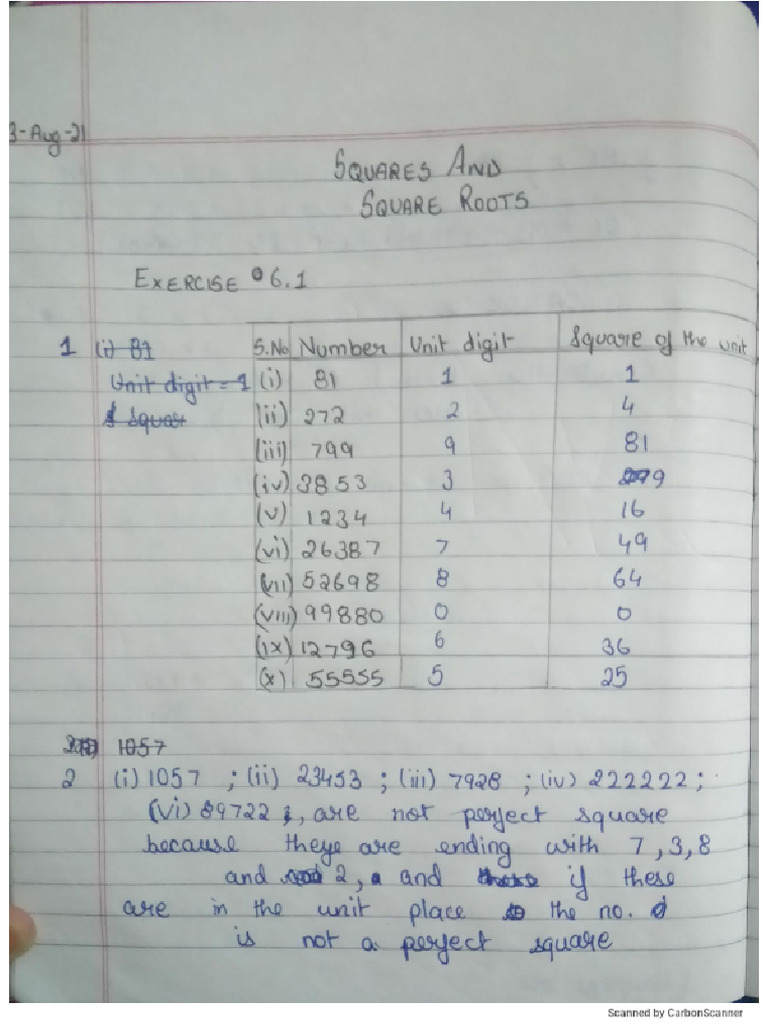 3-Aug-21
SQUARES AND
SQUARE ROOTS
EXERCISE 6.1
1 (i) 81 S.No Number Unit digit Square of the unit
Unit digit = 1 (i) 81 1 1
Squar (ii) 272 2 4
(iii) 799 9 81
(iv) 3853 3 9
(v) 1234 4 16
(vi) 26387 7 49
(vii) 52698 8 64
(viii) 99880 0 0
(ix) 12796 6 36
(x) 55555 5 25
1057
2 (i) 1057 ; (ii) 23453 ; (iii) 7928 ; (iv) 222222 ;
(vi) 89722 , are not perfect square
because theye are ending with 7, 3, 8
and 2, and if these
are in the unit place the no.
is not a perfect square
Scanned by CarbonScanner